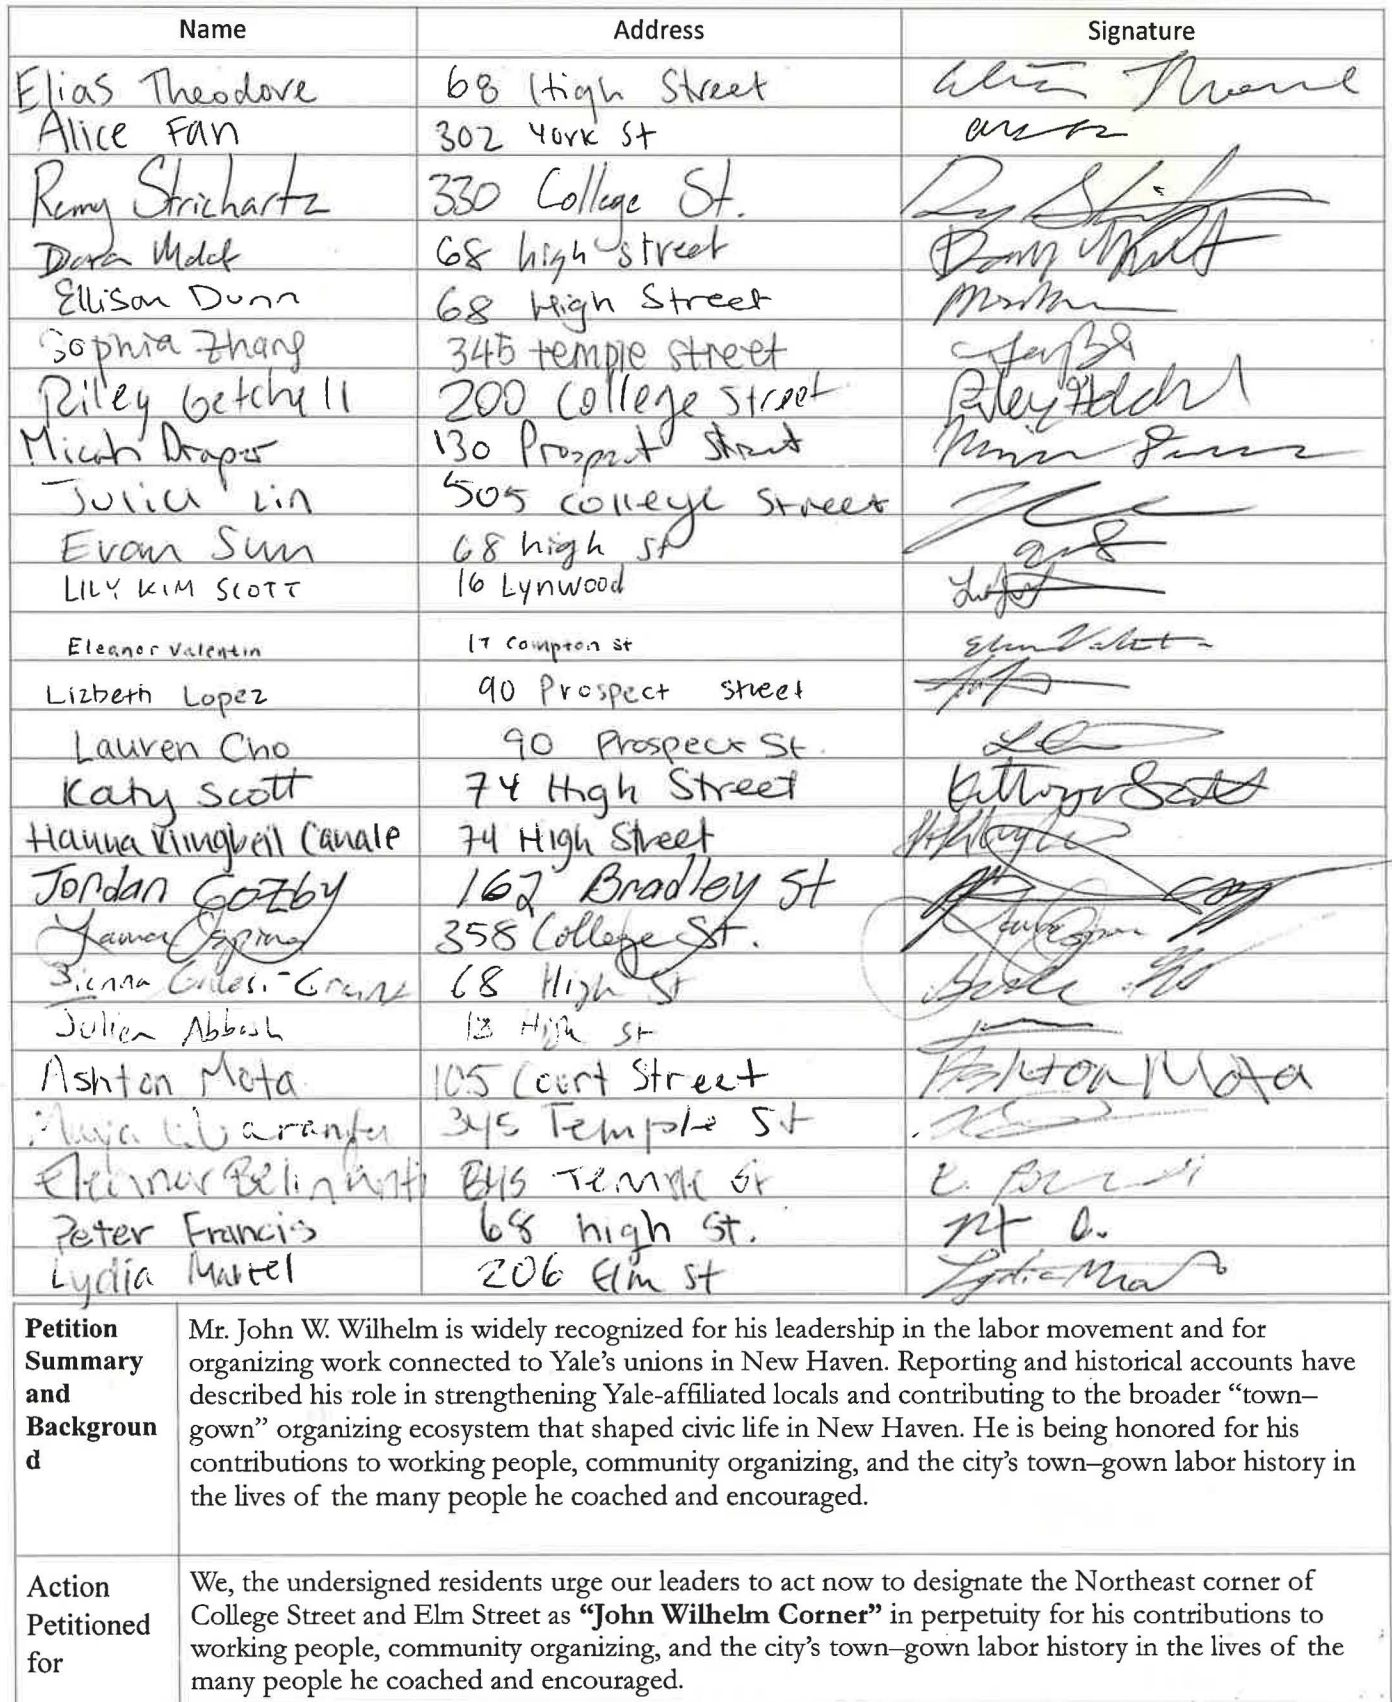 Name Address Signature
Elias Theodore 68 High Street
Alice Fan 302 York St
Remy Strichartz 330 College St.
Dara 68 high street
Ellison Dunn 68 High Street
Sophia Zhang 345 temple street
Riley Getchell 200 College Street Riley
Micah Draper 130 Prospect Street
Julia Lin 505 College Street
Evan Sun 68 high St
LILY KIM SCOTT 16 Lynwood
Eleanor Valentin 17 Compton St
Lizbeth Lopez 90 Prospect Street
Lauren Cho 90 Prospect St.
Katy Scott 74 High Street Scott
Hanna Klingbeil Canale 74 High Street
Jordan Gozby 162 Bradley St
358 College St.
Sienna 68 High St
Julian Abbash High St
Ashton Mota 105 Court Street Ashton Mota
345 Temple St
Eleanor 345 Temple St
Peter Francis 68 high St.
Lydia Martel 206 Elm St Lydia
Petition
Summary
and
Backgroun
d
Mr. John W. Wilhelm is widely recognized for his leadership in the labor movement and for
organizing work connected to Yale’s unions in New Haven. Reporting and historical accounts have
described his role in strengthening Yale-affiliated locals and contributing to the broader “town–
gown” organizing ecosystem that shaped civic life in New Haven. He is being honored for his
contributions to working people, community organizing, and the city’s town–gown labor history in
the lives of the many people he coached and encouraged.
Action
Petitioned
for
We, the undersigned residents urge our leaders to act now to designate the Northeast corner of
College Street and Elm Street as “John Wilhelm Corner” in perpetuity for his contributions to
working people, community organizing, and the city’s town–gown labor history in the lives of the
many people he coached and encouraged.